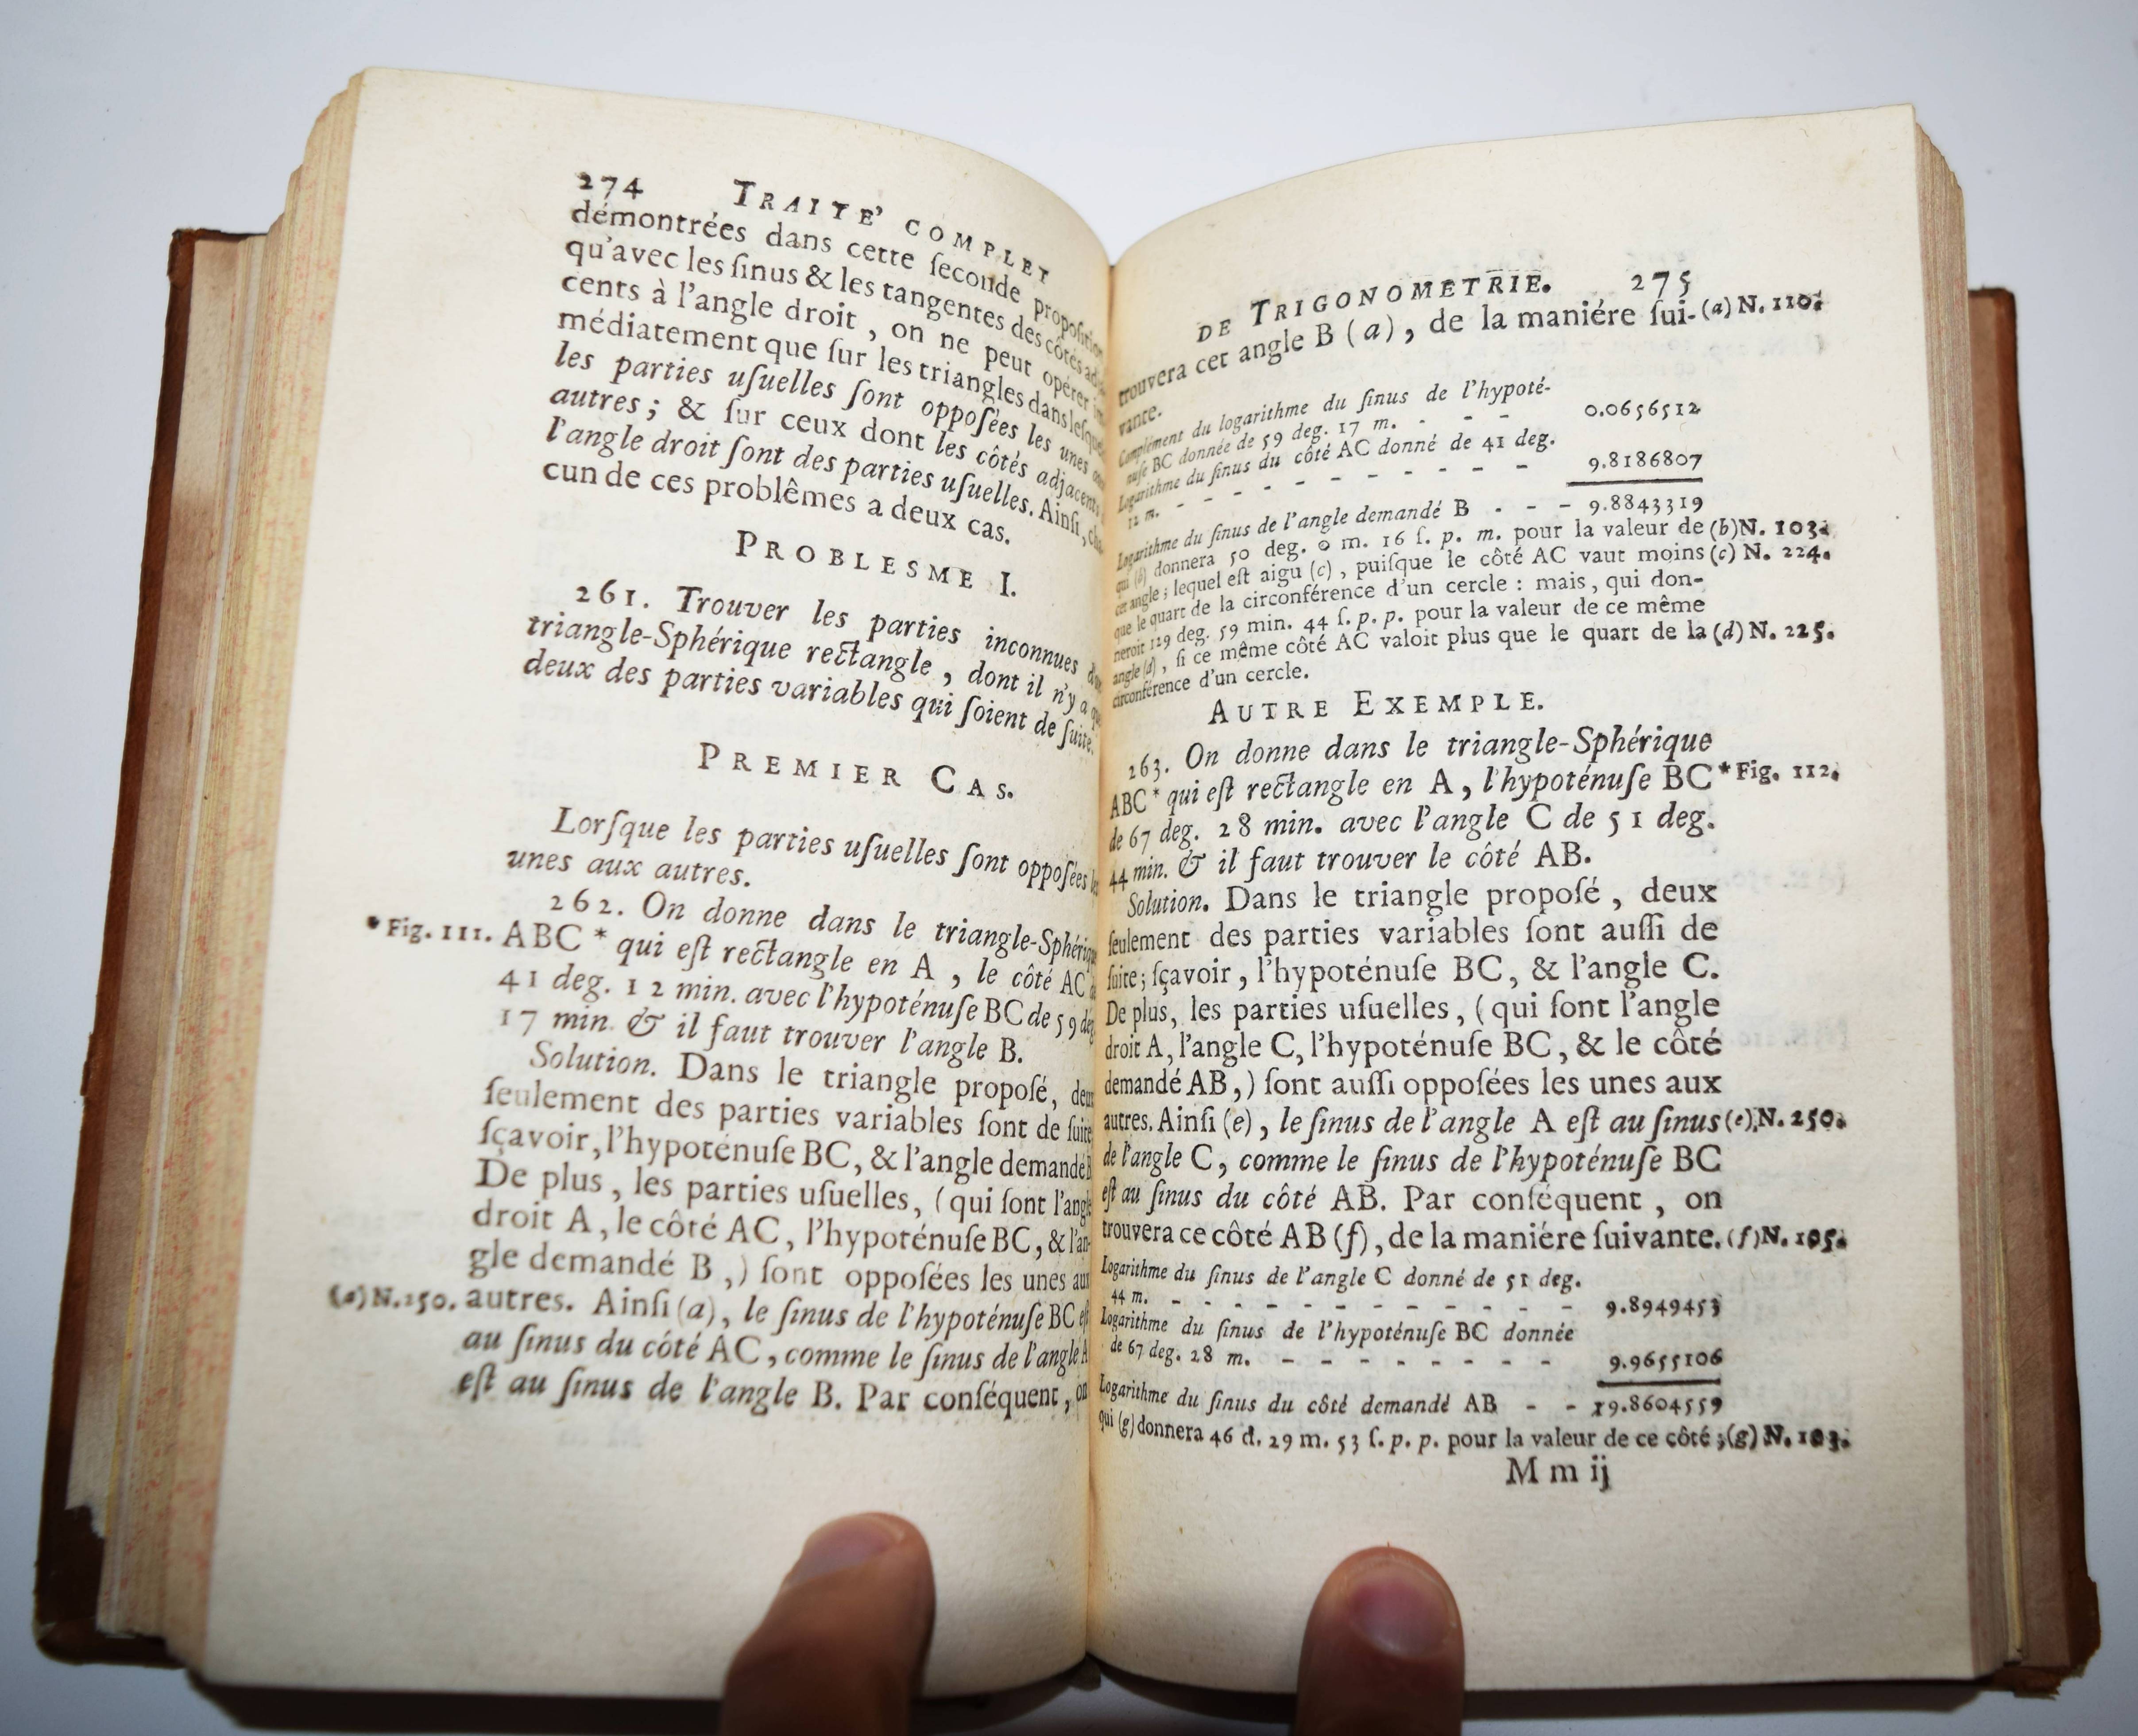 274 TRAITE' COMPLET
démontrées dans cette ſeconde propoſition
qu'avec les ſinus & les tangentes des côtés
cents à l'angle droit, on ne peut opérer
médiatement que ſur les triangles dans
les parties uſuelles ſont oppoſées les unes
autres; & ſur ceux dont les côtés adjacents
l'angle droit ſont des parties uſuelles. Ainſi,
cun de ces problêmes a deux cas.
PROBLESME I.
261. Trouver les parties inconnues
triangle-Sphérique rectangle, dont il n'y a
deux des parties variables qui ſoient de ſuite.
PREMIER CAS.
Lorſque les parties uſuelles ſont oppoſées
unes aux autres.
262. On donne dans le triangle-Sphérique
* Fig. 111. ABC * qui eſt rectangle en A, le côté AC
41 deg. 12 min. avec l'hypoténuſe BC de 59 deg
17 min. & il faut trouver l'angle B.
Solution. Dans le triangle propoſé, deux
ſeulement des parties variables ſont de ſuite
ſçavoir, l'hypoténuſe BC, & l'angle demandé B
De plus, les parties uſuelles, (qui ſont l'angle
droit A, le côté AC, l'hypoténuſe BC, & l'an-
gle demandé B,) ſont oppoſées les unes aux
(a) N. 250. autres. Ainſi (a), le ſinus de l'hypoténuſe BC eſt
au ſinus du côté AC, comme le ſinus de l'angle A
eſt au ſinus de l'angle B. Par conſéquent, on
DE TRIGONOMETRIE. 275
trouvera cet angle B (a), de la maniére ſui- (a) N. 110.
vante.
Complément du logarithme du ſinus de l'hypoté-
nuſe BC donnée de 59 deg. 17 m. - - - 0.0656512
Logarithme du ſinus du côté AC donné de 41 deg.
12 m. - - - - - - - - - 9.8186807
Logarithme du ſinus de l'angle demandé B - - - 9.8843319
qui (b) donnera 50 deg. 0 m. 16 ſ. p. m. pour la valeur de (b) N. 103.
cet angle; lequel eſt aigu (c), puiſque le côté AC vaut moins (c) N. 224.
que le quart de la circonférence d'un cercle: mais, qui don-
neroit 129 deg. 59 min. 44 ſ. p. p. pour la valeur de ce même
angle (d), ſi ce même côté AC valoit plus que le quart de la (d) N. 225.
circonférence d'un cercle.
AUTRE EXEMPLE.
263. On donne dans le triangle-Sphérique
ABC * qui eſt rectangle en A, l'hypoténuſe BC * Fig. 112.
de 67 deg. 28 min. avec l'angle C de 51 deg.
44 min. & il faut trouver le côté AB.
Solution. Dans le triangle propoſé, deux
ſeulement des parties variables ſont auſſi de
ſuite; ſçavoir, l'hypoténuſe BC, & l'angle C.
De plus, les parties uſuelles, (qui ſont l'angle
droit A, l'angle C, l'hypoténuſe BC, & le côté
demandé AB,) ſont auſſi oppoſées les unes aux
autres. Ainſi (e), le ſinus de l'angle A eſt au ſinus (e) N. 250.
de l'angle C, comme le ſinus de l'hypoténuſe BC
eſt au ſinus du côté AB. Par conſéquent, on
trouvera ce côté AB (f), de la maniére ſuivante. (f) N. 105.
Logarithme du ſinus de l'angle C donné de 51 deg.
44 m. - - - - - - - - - - - - - 9.8949453
Logarithme du ſinus de l'hypoténuſe BC donnée
de 67 deg. 28 m. - - - - - - - - - 9.9655106
Logarithme du ſinus du côté demandé AB - - 19.8604559
qui (g) donnera 46 d. 29 m. 53 ſ. p. p. pour la valeur de ce côté; (g) N. 103.
M m ij